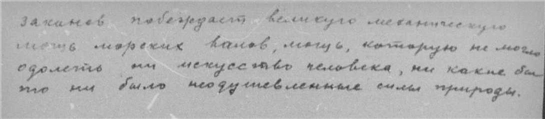 законов побеждает великую механическую
мощь морских валов, мощь, которую не могло
одолеть ни искусство человека, ни какие бы
то ни было неодушевленные силы природы.